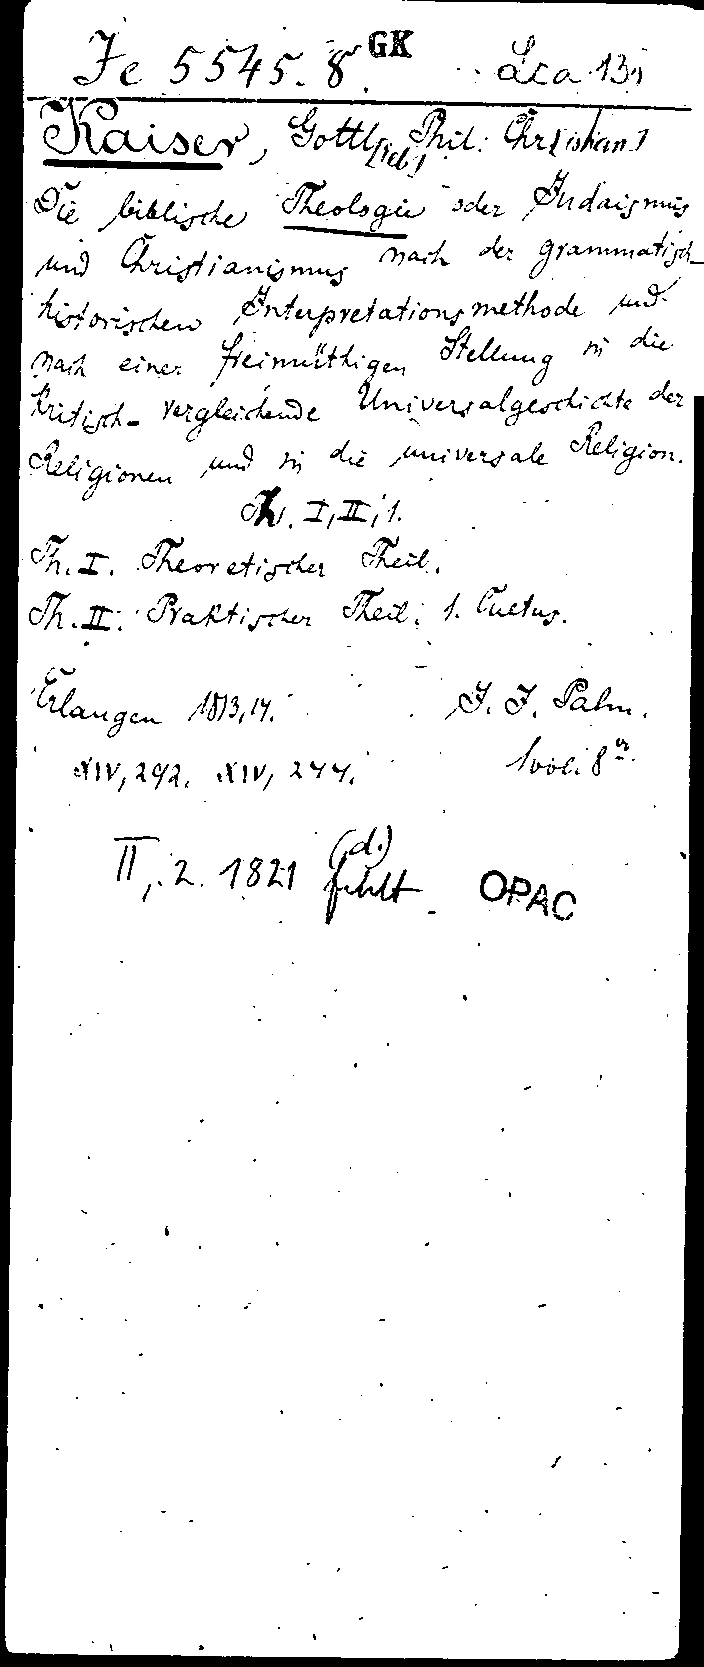 Je 5545.8 GK Lca 131
Kaiser, Gottl[ieb] Phil. Chr[istian]
Die biblische Theologie oder Judaismus
und Christianismus nach der grammatisch-
historischen Interpretationsmethode und
nach einer freimüthigen Stellung in die
kritisch-vergleichende Universalgeschichte der
Religionen und in die universale Religion.
Th. I, II, 1.
Th. I. Theoretischer Theil.
Th. II. Praktischer Theil. 1. Cultus.
Erlangen 1813,14. J. J. Palm.
XIV, 292. XIV, 244. 1 vol. 8°.
II, 2. 1821 (d.) fehlt OPAC